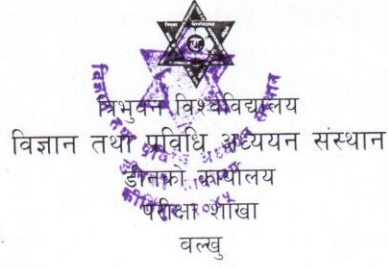 त्रिभुवन विश्वविद्यालय
विज्ञान तथा प्रविधि अध्ययन संस्थान
डीनको कार्यालय
परीक्षा शाखा
वल्खु